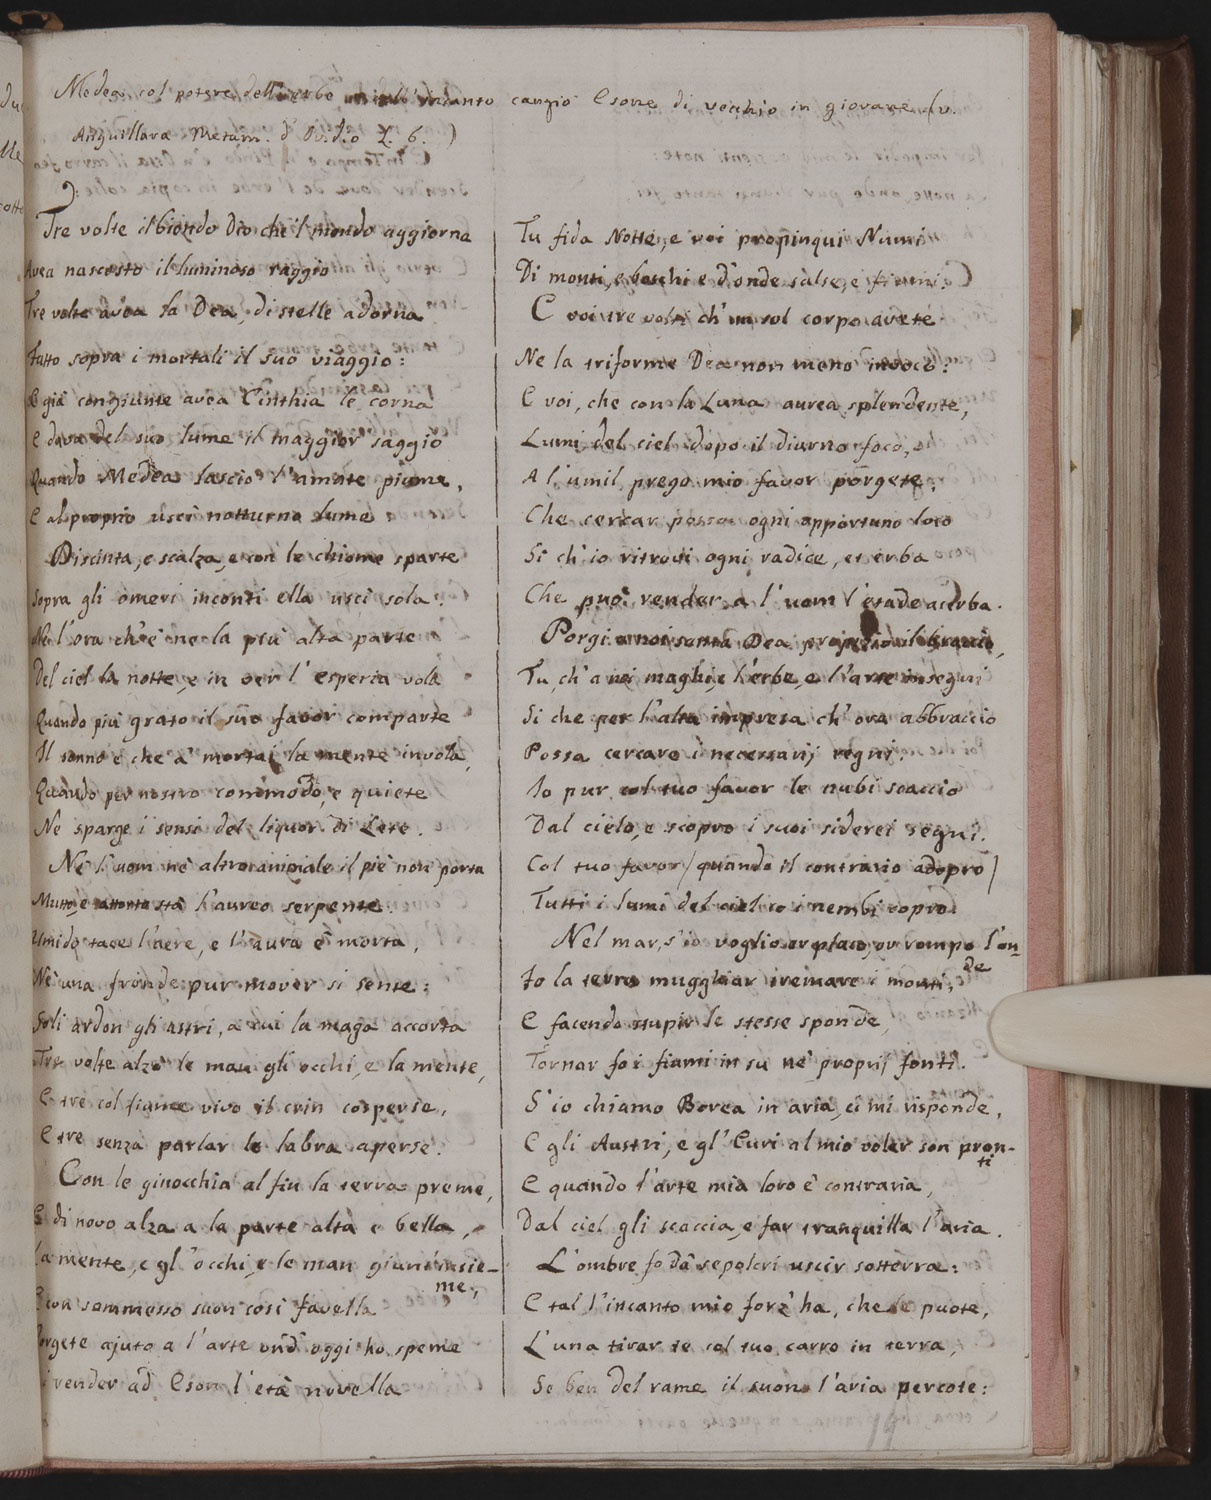 Medea col potere dell'erbe e coll'incanto cangiò Esone di vecchio in giovane (v.
Anguillara Metam. d'Ovidio L. 6. )
Tre volte il biondo Dio che 'l mondo aggiorna
Avea nascosto il luminoso raggio
Tre volte avea la Dea, di stelle adorna
Fatto sopra i mortali il suo viaggio:
E già congiunte avea Cinthia le corna
E dava del suo lume il maggior saggio
Quando Medea lasciò l'amate piume,
E al proprio uscì notturno lume
Discinta, e scalza, e con le chiome sparte
Sopra gli omeri inconti ella uscì sola:
Ne l'ora ch'è ne la più alta parte
Del ciel la notte, e in ver l'esperia vola
Quando più grato il suo favor comparte
Il sonno e che a' mortai la mente invola,
Quando per nostro commodo, e quiete
Ne sparge i sensi del liquor di Lete.
Nè l'uom nè altro animale il piè non porta
Muto, e attorto stà l'aureo serpente.
Umido tace l'aere, e l'aura è morta,
Nè una fronde pur mover si sente:
Soli ardon gli astri, a cui la maga accorta
Tre volte alzò le man gli occhi, e la mente,
E tre col fiume vivo il crin cosperse,
E tre senza parlar le labra aperse.
Con le ginocchia al fin la terra preme,
E di novo alza a la parte alta e bella,
La mente, e gl'occhi, e le man giunt'insie-
me,
E con sommesso suon così favella
Porgete ajuto a l'arte ond'oggi ho speme
Di render ad Eson l'età novella
Tu fida Notte, e voi propinqui Numi
Di monti, e boschi e d'onde salse, e fiumi.
E voi tre volti ch'un sol corpo avete
Ne la triforme Dea non meno invoco:
E voi, che con la Luna aurea splendente,
Lumi del ciel dopo il diurno foco,
A l'umil prego mio favor porgete,
Che cercar possa ogni opportuno loco
Si ch'io ritrovi ogni radice, et erba
Che può render a l'uom l'etade acerba.
Porgi a noi santa Dea propizio il braccio,
Tu, ch'a noi maghi, e l'erbe, e l'arte insegni
Si che per l'alta impresa ch'ora abbraccio
Possa cercare i necessarij regni.
Io pur col tuo favor le nubi scaccio
Dal cielo, e scopro i suoi siderei segni.
Col tuo favor / quando il contrario adopro /
Tutti i lumi del ciel co i nembi copro.
Nel mar, s'io voglio or placo, or rompo l'on-
de
Fo la terra mugghiar tremare i monti,
E facendo stupir le stesse sponde
Tornar fo i fiumi in su ne' proprij fonti.
S'io chiamo Borea in aria, ei mi risponde,
E gli Austri, e gl'Euri al mio voler son pron-
ti
E quando l'arte mia loro è contraria,
Dal ciel gli scaccia, e far tranquilla l'aria.
L'ombre fo da' sepolcri uscir sotterra:
E tal l'incanto mio forz' ha, che se puote,
L'una tirar te col tuo carro in terra,
Se ben del rame il suon l'aria percote: